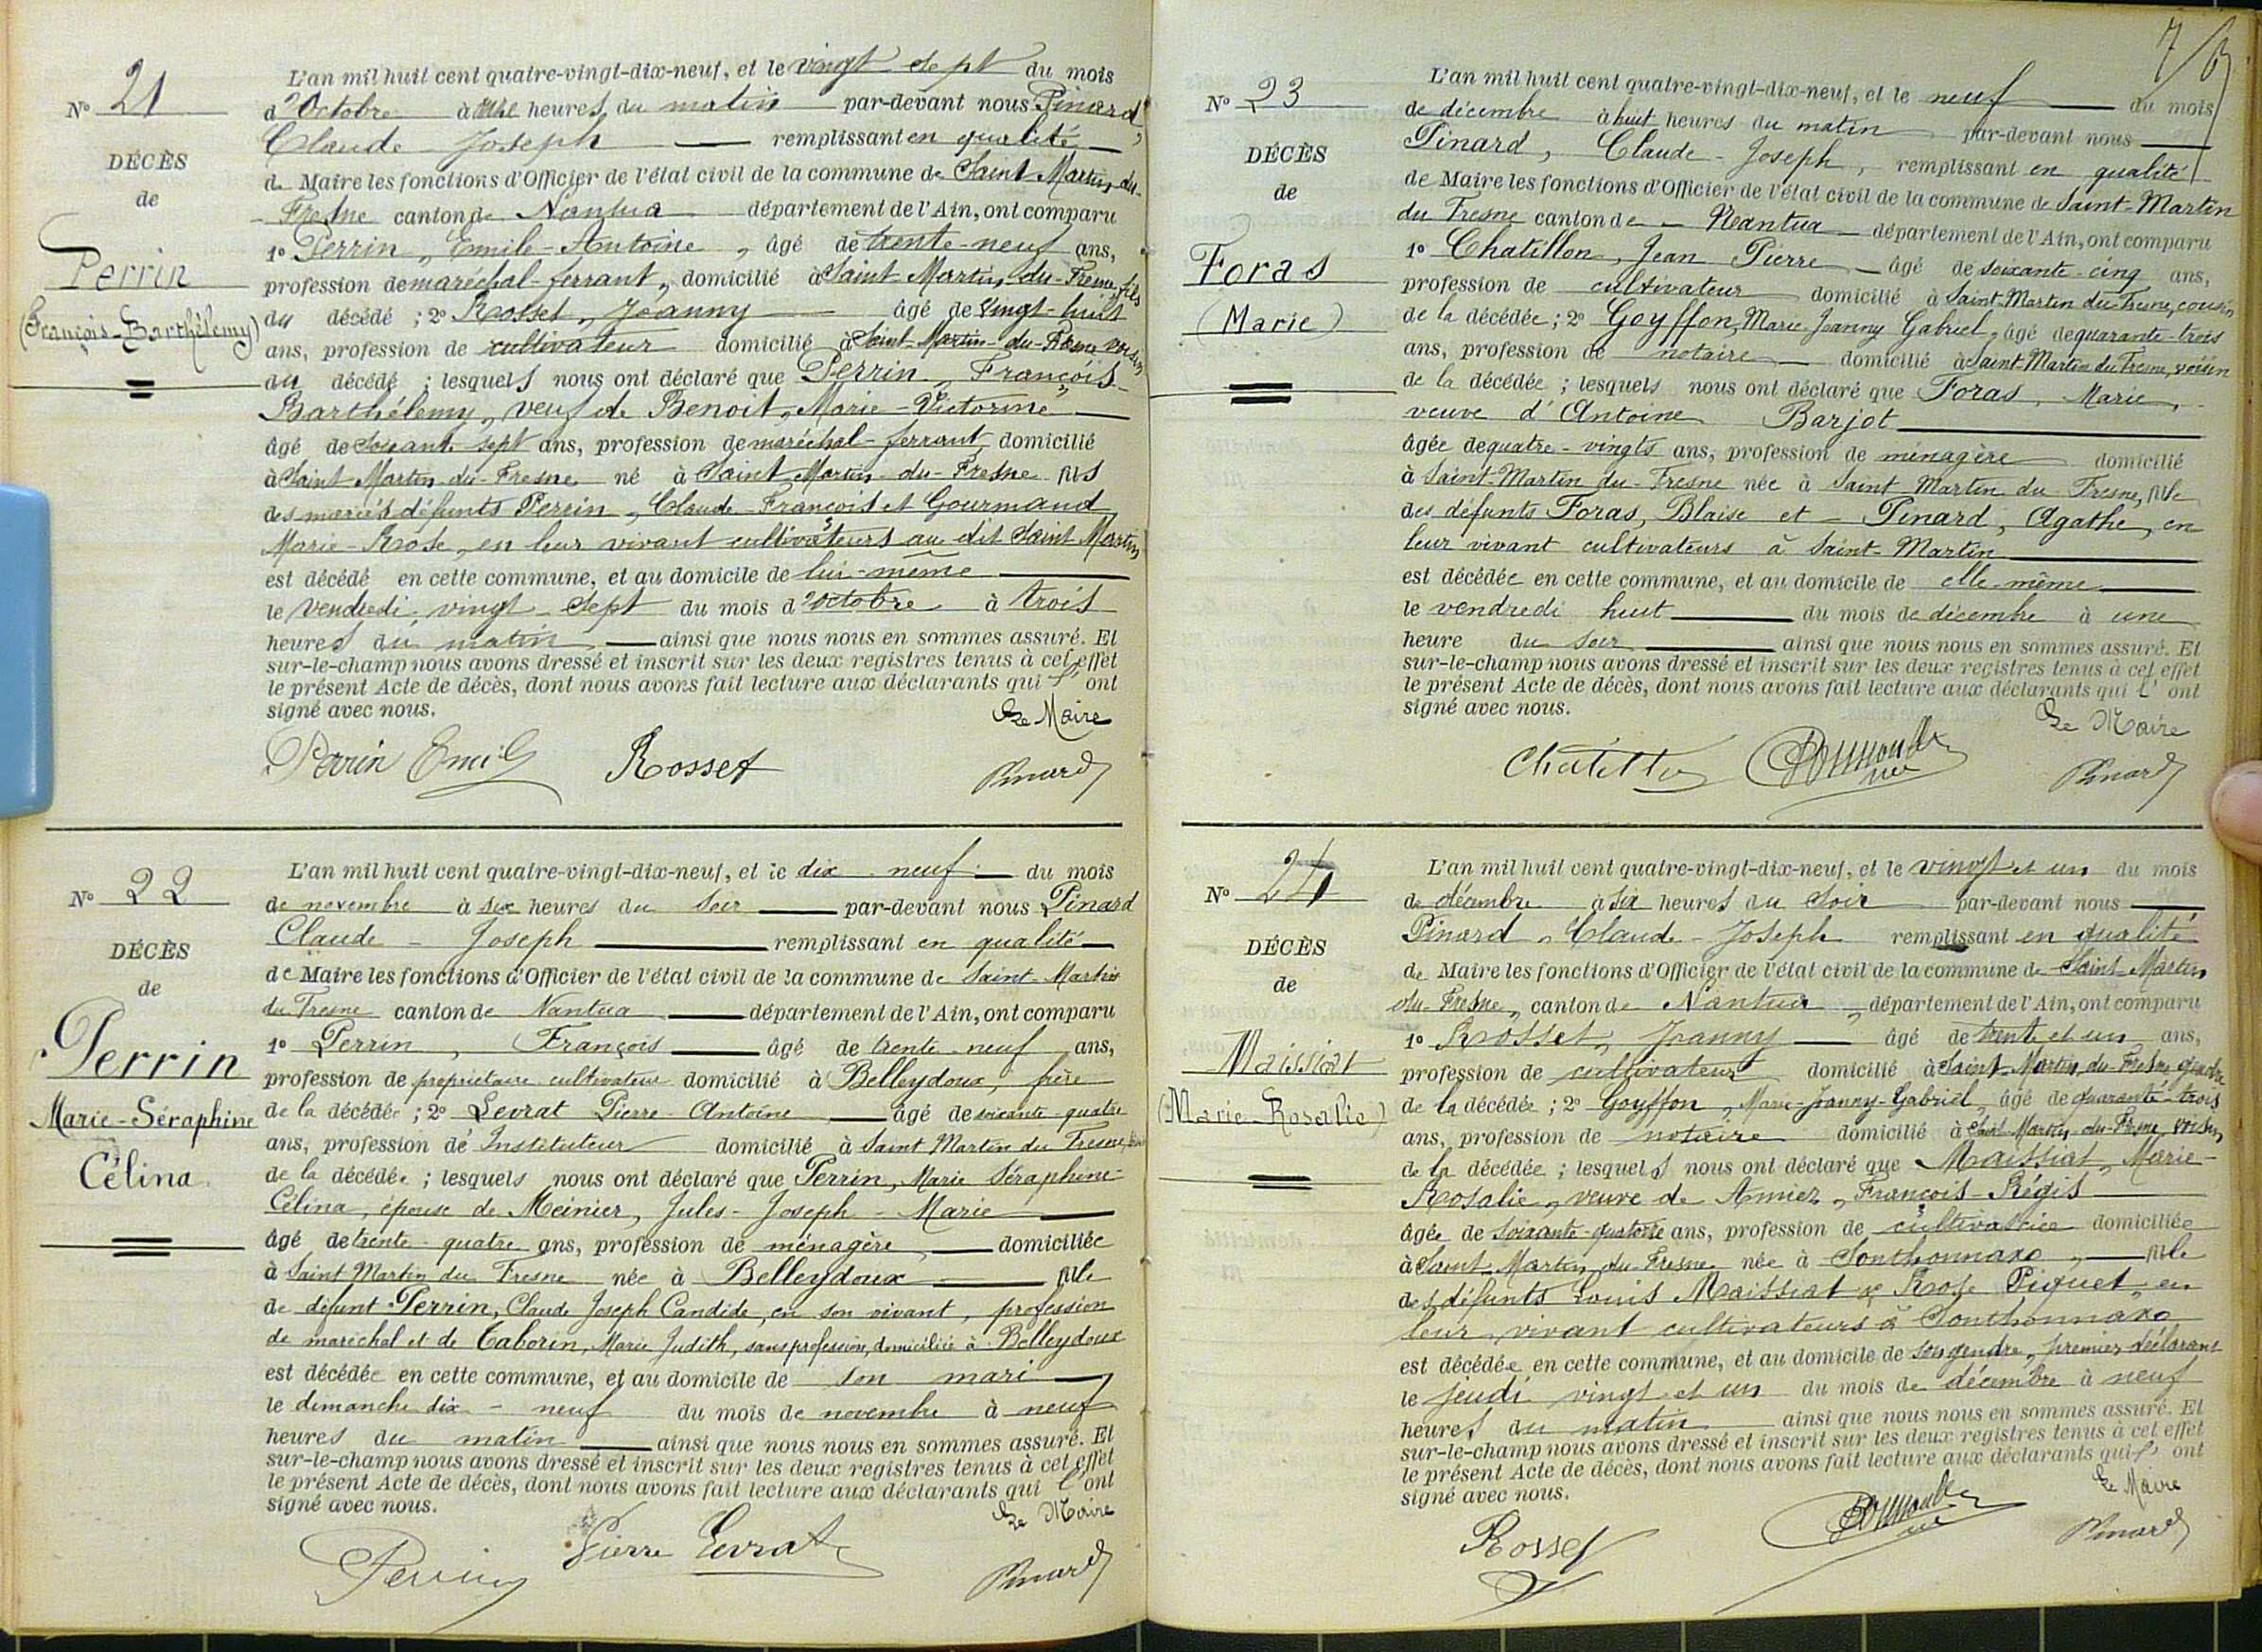 N° 21
DÉCÈS
de
Perrin
(François-Barthélemy)
L'an mil huit cent quatre-vingt-dix-neuf, et le vingt sept du mois
d'Octobre à heures du matin par-devant nous Pinard,
Claude Joseph remplissant en qualité
de Maire les fonctions d'Officier de l'état civil de la commune de Saint Martin-du-
Fresne canton de Nantua département de l'Ain, ont comparu
1° Perrin, Emile-Antoine, âgé de trente-neuf ans,
profession de maréchal-ferrant, domicilié à Saint Martin-du-Fresne, fils
du décédé ; 2° Rosset, Joanny âgé de vingt-huit
ans, profession de cultivateur domicilié à Saint-Martin-du-Fresne voisin
du décédé ; lesquels nous ont déclaré que Perrin, François-
Barthélemy, veuf de Benoit, Marie-Victorine
âgé de soixante sept ans, profession de maréchal-ferrant domicilié
à Saint Martin-du-Fresne né à Saint Martin-du-Fresne fils
des mariés défunts Perrin, Claude-François et Gourmand
Marie-Rose, en leur vivant cultivateurs au dit Saint Martin
est décédé en cette commune, et au domicile de lui-même
le Vendredi, vingt-sept du mois d'octobre à trois
heures du matin ainsi que nous nous en sommes assuré. Et
sur-le-champ nous avons dressé et inscrit sur les deux registres tenus à cet effet
le présent Acte de décès, dont nous avons fait lecture aux déclarants qui l'ont
signé avec nous.
Le Maire
Perrin Emile Rosset Pinard
N° 22
DÉCÈS
de
Perrin
Marie-Séraphine
Célina
L'an mil huit cent quatre-vingt-dix-neuf, et le dix-neuf du mois
de novembre à six heures du soir par-devant nous Pinard
Claude-Joseph remplissant en qualité
de Maire les fonctions d'Officier de l'état civil de la commune de Saint-Martin
du Fresne canton de Nantua département de l'Ain, ont comparu
1° Perrin, François âgé de trente-neuf ans,
profession de propriétaire cultivateur domicilié à Belleydoux, frère
de la décédée ; 2° Levrat Pierre-Antoine âgé de soixante-quatre
ans, profession de Instituteur domicilié à Saint Martin du Fresne,
de la décédée ; lesquels nous ont déclaré que Perrin, Marie Séraphine-
Célina, épouse de Meinier, Jules-Joseph-Marie
âgé de trente-quatre ans, profession de ménagère domiciliée
à Saint Martin du Fresne née à Belleydoux fille
de défunt Perrin, Claude Joseph Candide, en son vivant, profession
de maréchal et de Taborin, Marie Judith, sans profession, domiciliée à Belleydoux
est décédée en cette commune, et au domicile de son mari
le dimanche dix-neuf du mois de novembre à neuf
heures du matin ainsi que nous nous en sommes assuré. Et
sur-le-champ nous avons dressé et inscrit sur les deux registres tenus à cet effet
le présent Acte de décès, dont nous avons fait lecture aux déclarants qui l'ont
signé avec nous.
Le Maire
Perrin Pierre Levrat Pinard
N° 23
DÉCÈS
de
Foras
(Marie)
L'an mil huit cent quatre-vingt-dix-neuf, et le neuf du mois
de décembre à huit heures du matin par-devant nous
Pinard, Claude-Joseph, remplissant en qualité
de Maire les fonctions d'Officier de l'état civil de la commune de Saint-Martin
du Fresne canton de Nantua département de l'Ain, ont comparu
1° Chatillon, Jean Pierre âgé de soixante-cinq ans,
profession de cultivateur domicilié à Saint-Martin du Fresne, cousin
de la décédée ; 2° Goyffon, Marie Joanny Gabriel, âgé de quarante-trois
ans, profession de notaire domicilié à Saint-Martin du Fresne, voisin
de la décédée ; lesquels nous ont déclaré que Foras, Marie,
veuve d'Antoine Barjot
âgée de quatre-vingts ans, profession de ménagère domicilié
à Saint-Martin du-Fresne née à Saint Martin du Fresne, fille
des défunts Foras, Blaise et Pinard, Agathe, en
leur vivant cultivateurs à Saint-Martin
est décédée en cette commune, et au domicile de elle-même
le vendredi huit du mois de décembre à une
heure du soir ainsi que nous nous en sommes assuré. Et
sur-le-champ nous avons dressé et inscrit sur les deux registres tenus à cet effet
le présent Acte de décès, dont nous avons fait lecture aux déclarants qui l'ont
signé avec nous.
Le Maire
Pinard
N° 24
DÉCÈS
de
Maissiat
(Marie-Rosalie)
L'an mil huit cent quatre-vingt-dix-neuf, et le vingt et un du mois
de décembre à six heures du soir par-devant nous
Pinard, Claude-Joseph remplissant en qualité
de Maire les fonctions d'Officier de l'état civil de la commune de Saint-Martin
du-Fresne, canton de Nantua, département de l'Ain, ont comparu
1° Rosset, Joanny âgé de trente et un ans,
profession de cultivateur domicilié à Saint-Martin-du-Fresne gendre
de la décédée ; 2° Goyffon, Marie-Joanny-Gabriel, âgé de quarante-trois
ans, profession de notaire domicilié à Saint Martin-du-Fresne, voisin
de la décédée ; lesquels nous ont déclaré que Maissiat, Marie-
Rosalie, veuve de Anniez, François-Régis
âgée de soixante-quatorze ans, profession de cultivatrice domiciliée
à Saint-Martin-du-Fresne née à Sonthonnax, fille
des défunts Louis Maissiat & Rose Piquet, en
leur vivant cultivateurs à Sonthonnax
est décédée en cette commune, et au domicile de son gendre, premier déclarant
le jeudi vingt et un du mois de décembre à neuf
heures du matin ainsi que nous nous en sommes assuré. Et
sur-le-champ nous avons dressé et inscrit sur les deux registres tenus à cet effet
le présent Acte de décès, dont nous avons fait lecture aux déclarants qui l'ont
signé avec nous.
Le Maire
Rosset Pinard